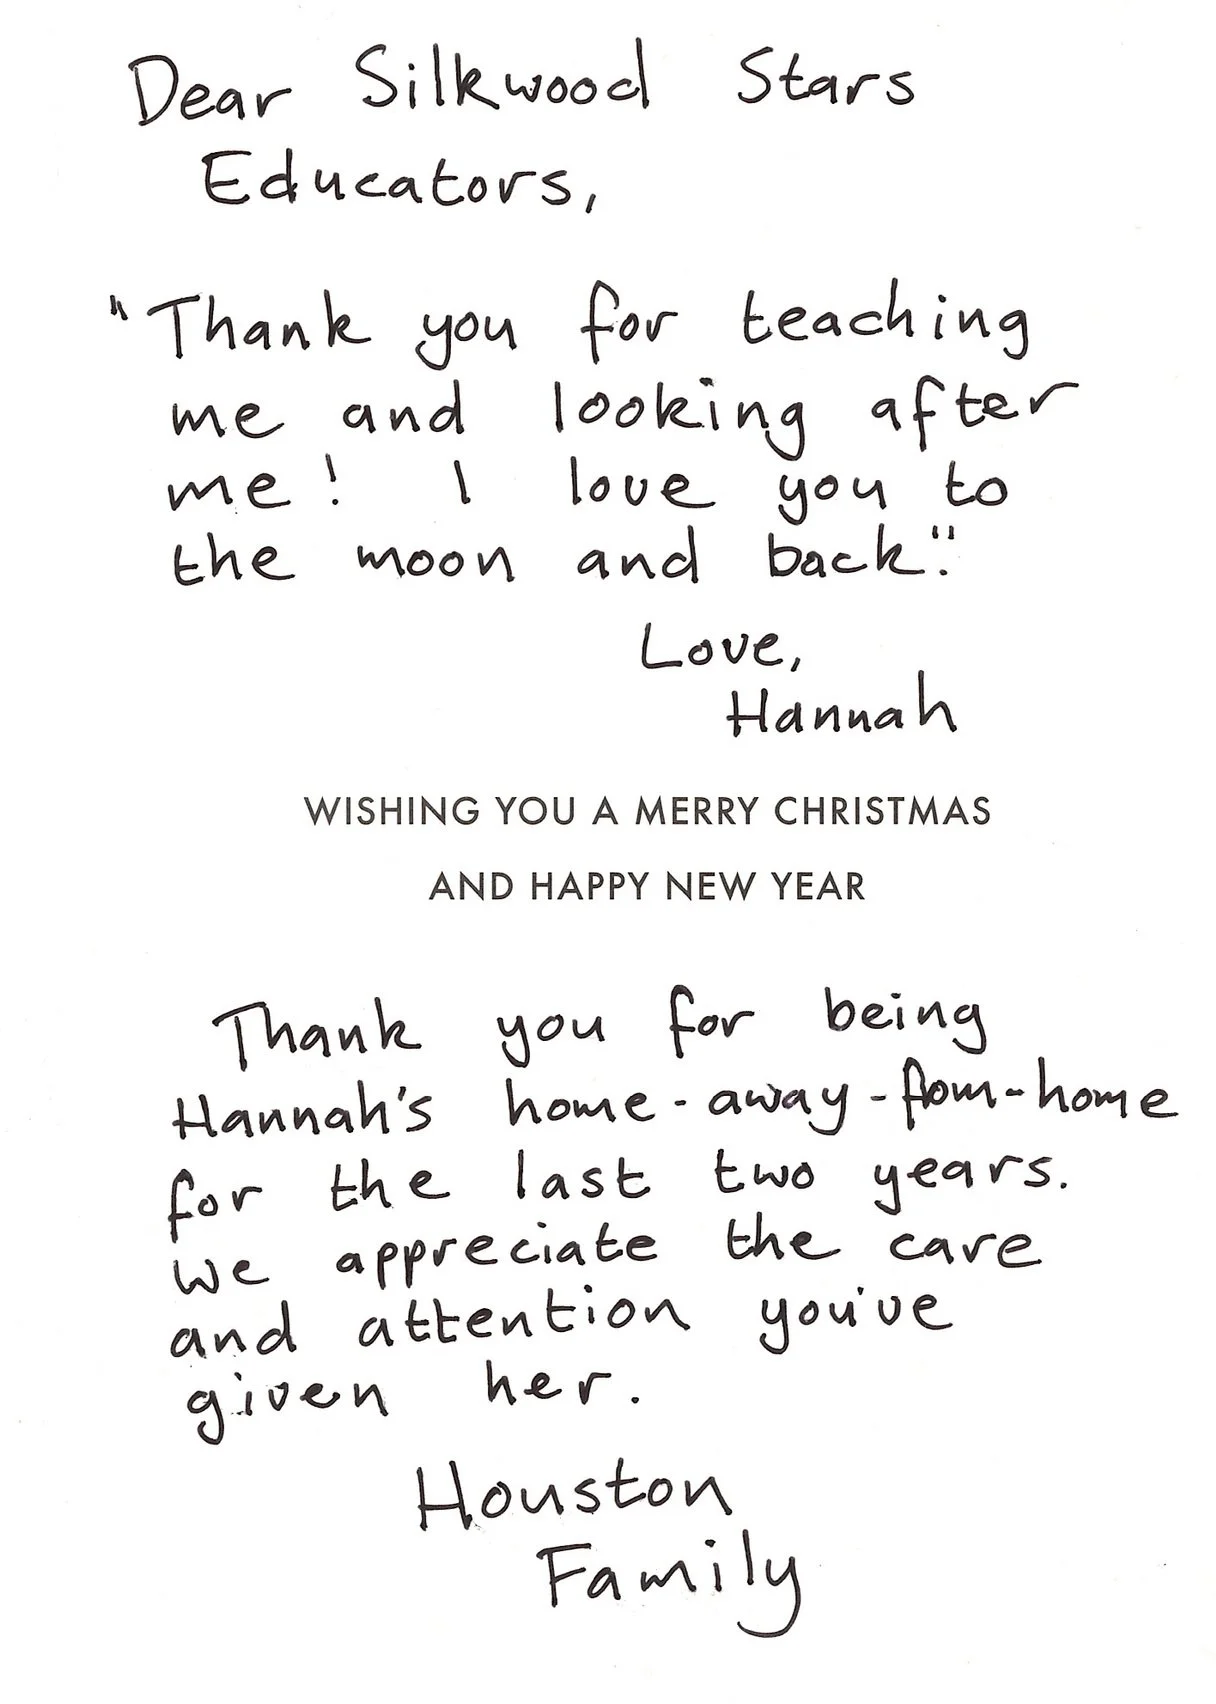 Dear Silkwood Stars
Educators,
"Thank you for teaching
me and looking after
me! I love you to
the moon and back."
Love,
Hannah
WISHING YOU A MERRY CHRISTMAS
AND HAPPY NEW YEAR
Thank you for being
Hannah's home-away-from-home
for the last two years.
We appreciate the care
and attention you've
given her.
Houston
Family